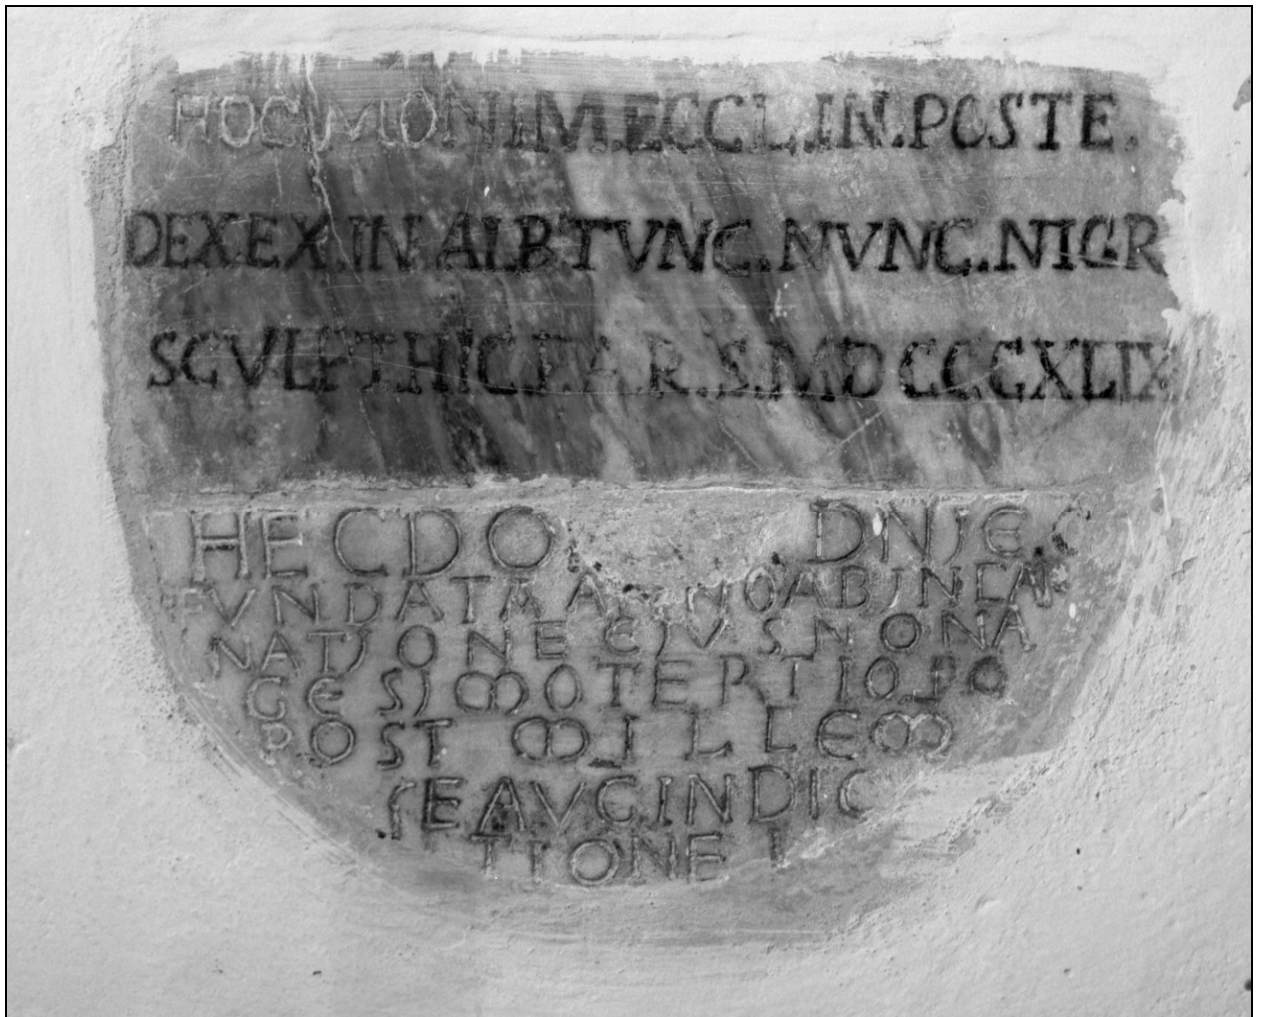 HOC.MONIM.ECCL.IN.POSTE.
DEX.EX.IN.ALB.TVNC.NVNC.NIGR
SCVLPT.HIC.F.A.R.S.M.D CCCXLIX
HEC DO DNI EC
FVNDATA ANNO AB INCAR
NATIONE EJVS NONA
GESIMO TERTIO PO
POST MILLEM
RE AVG INDIC
TIONE I